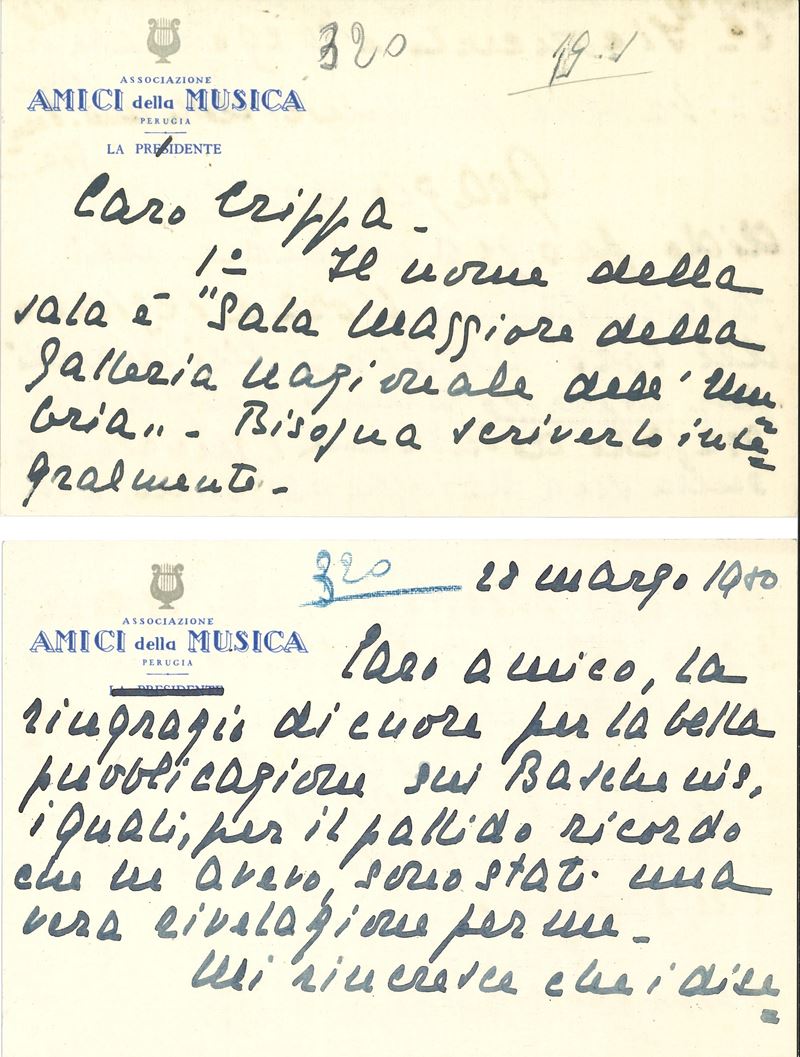 320
19.1
ASSOCIAZIONE
AMICI della MUSICA
PERUGIA
LA PRESIDENTE
Caro Crippa -
1º Il nome della
sala è "Sala Maggiore della
Galleria Nazionale dell' Um=
bria" - Bisogna scriverlo inte=
gralmente. -
320
28 marzo 1980
ASSOCIAZIONE
AMICI della MUSICA
PERUGIA
LA PRESIDENTE
Caro amico, la
ringrazio di cuore per la bella
pubblicazione sui Baschenis,
i quali, per il pallido ricordo
che ne avevo, sono stati una
vera rivelazione per me. -
Mi rincresce che i dise=